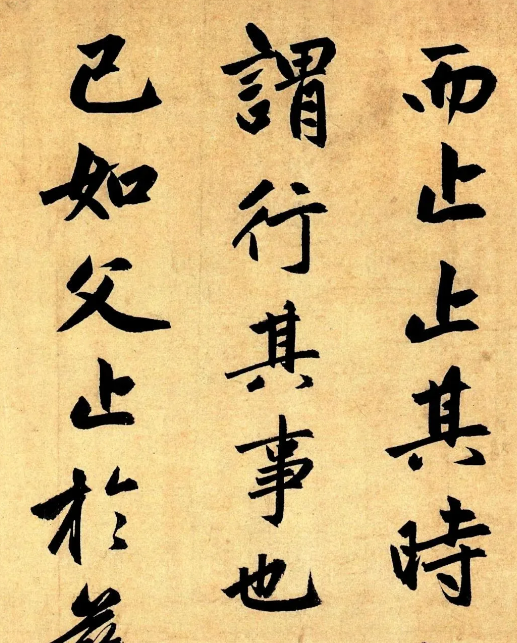 而止止其時
謂行其事也
已如父止於